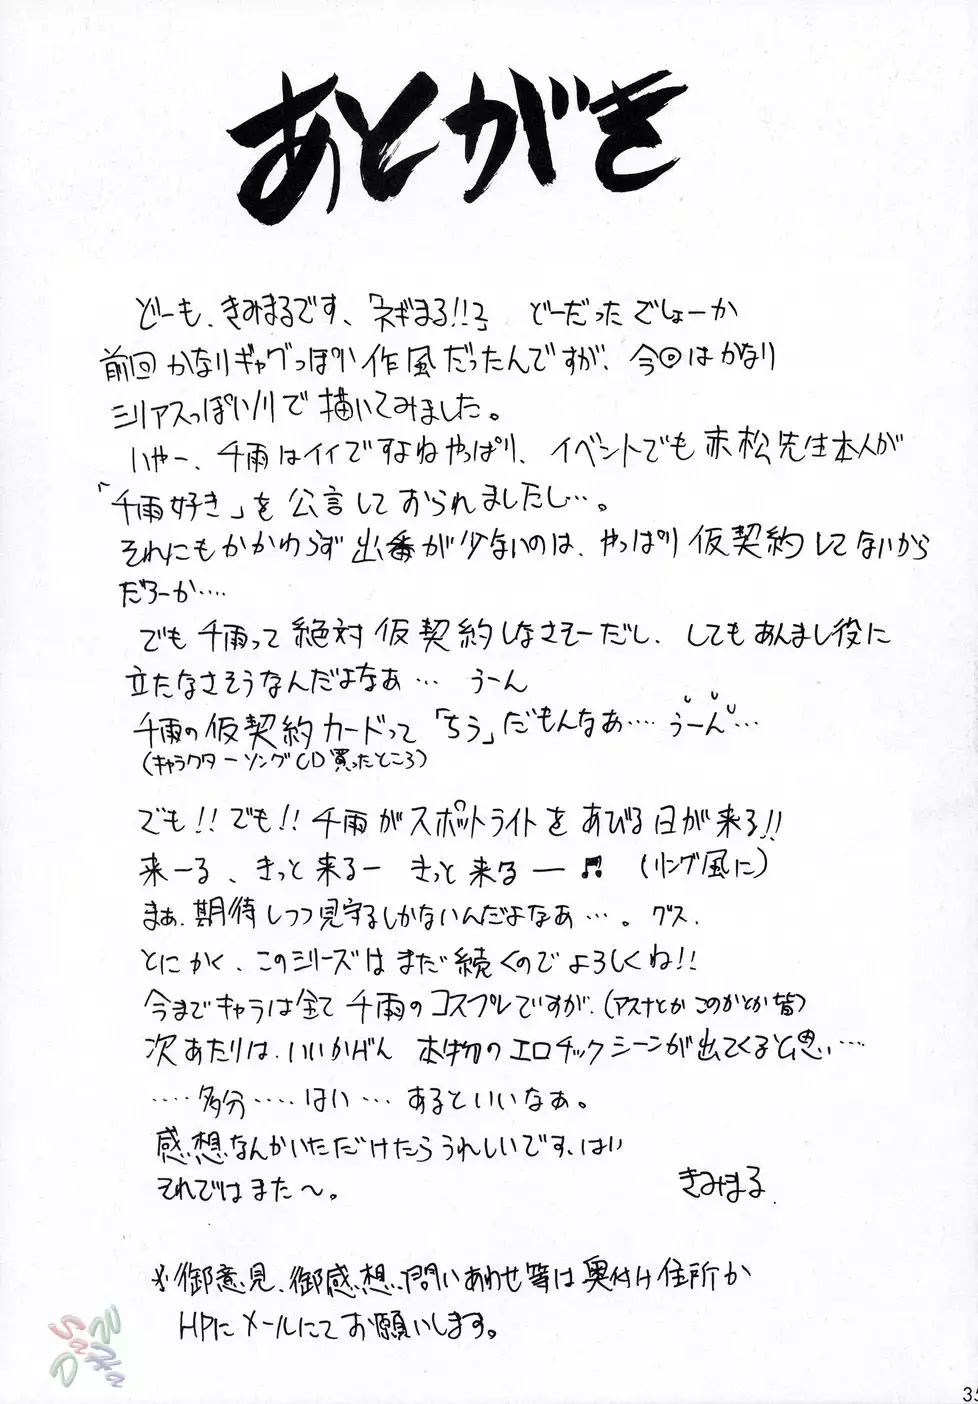 あとがき
どーも、きみまるです、「ネギまる!!2」 どーだったでしょーか
前回かなりギャグっぽい作風だったんですが、今回はかなり
シリアスっぽいノリで描いてみました。
いやー、千雨はイイですよねやっぱり、イベントでも赤松先生本人が
「千雨好き」を公言しておられましたし…。
それにもかかわらず出番が少ないのは、やっぱり仮契約してないから
だろーか….
でも千雨って絶対仮契約しなさそーだし、してもあんまし役に
立たなさそうなんだよなあ… うーん
千雨の仮契約カードって「ちう」だもんなあ…. うーん…
(キャラクターソングCD買ったところ)
でも!!でも!!千雨がスポットライトをあびる日が来る!!
来ーる、きっと来るー きっと来るー♬ (リング風に)
まぁ、期待しつつ見守るしかないんだよなあ…。グス.
とにかく、このシリーズはまだ続くのでよろしくね!!
今までキャラは全て千雨のコスプレですが、(アスナとかこのかとか皆)
次あたりは、いいかげん本物のエロチックシーンが出てくると思い…
….多分….はい…あるといいなぁ。
感想なんかいただけたらうれしいです、はい
それではまた〜。 きみまる
※御意見、御感想、問いあわせ等は奥付け住所か
HPにメールにてお願いします。
35